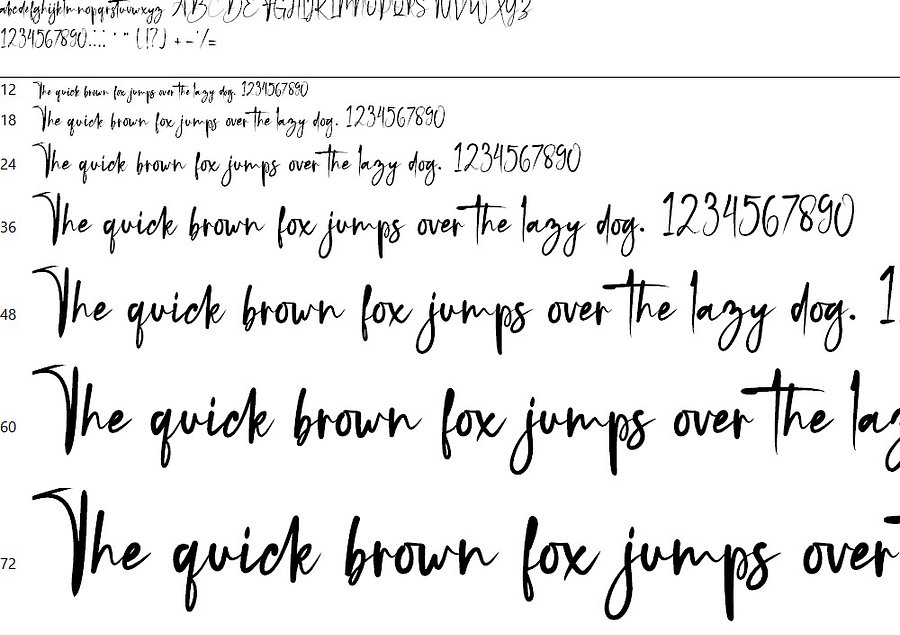 abcdefghijklmnopqrstuvwxyz ABCDEFGHIJKLMNOPQRSTUVWXYZ
1234567890.:,; ' " (!?) +-*/=
12 The quick brown fox jumps over the lazy dog. 1234567890
18 The quick brown fox jumps over the lazy dog. 1234567890
24 The quick brown fox jumps over the lazy dog. 1234567890
36 The quick brown fox jumps over the lazy dog. 1234567890
48 The quick brown fox jumps over the lazy dog. 1
60 The quick brown fox jumps over the laz
72 The quick brown fox jumps over